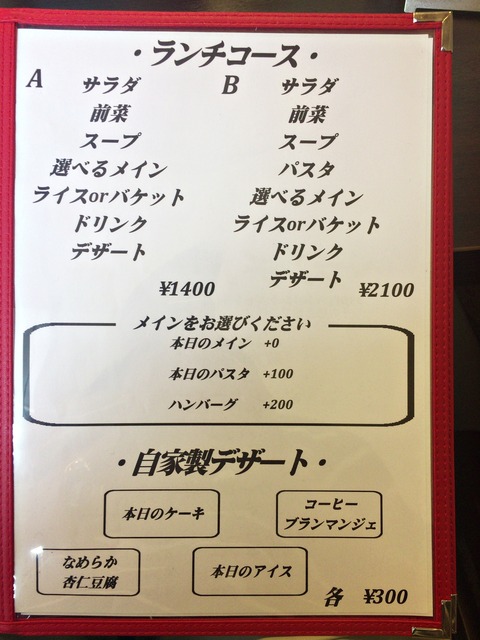 ・ランチコース・
A
サラダ
前菜
スープ
選べるメイン
ライスorバケット
ドリンク
デザート
¥1400
B
サラダ
前菜
スープ
パスタ
選べるメイン
ライスorバケット
ドリンク
デザート
¥2100
メインをお選びください
本日のメイン +0
本日のパスタ +100
ハンバーグ +200
・自家製デザート・
本日のケーキ
コーヒー
ブランマンジェ
なめらか
杏仁豆腐
本日のアイス
各 ¥300